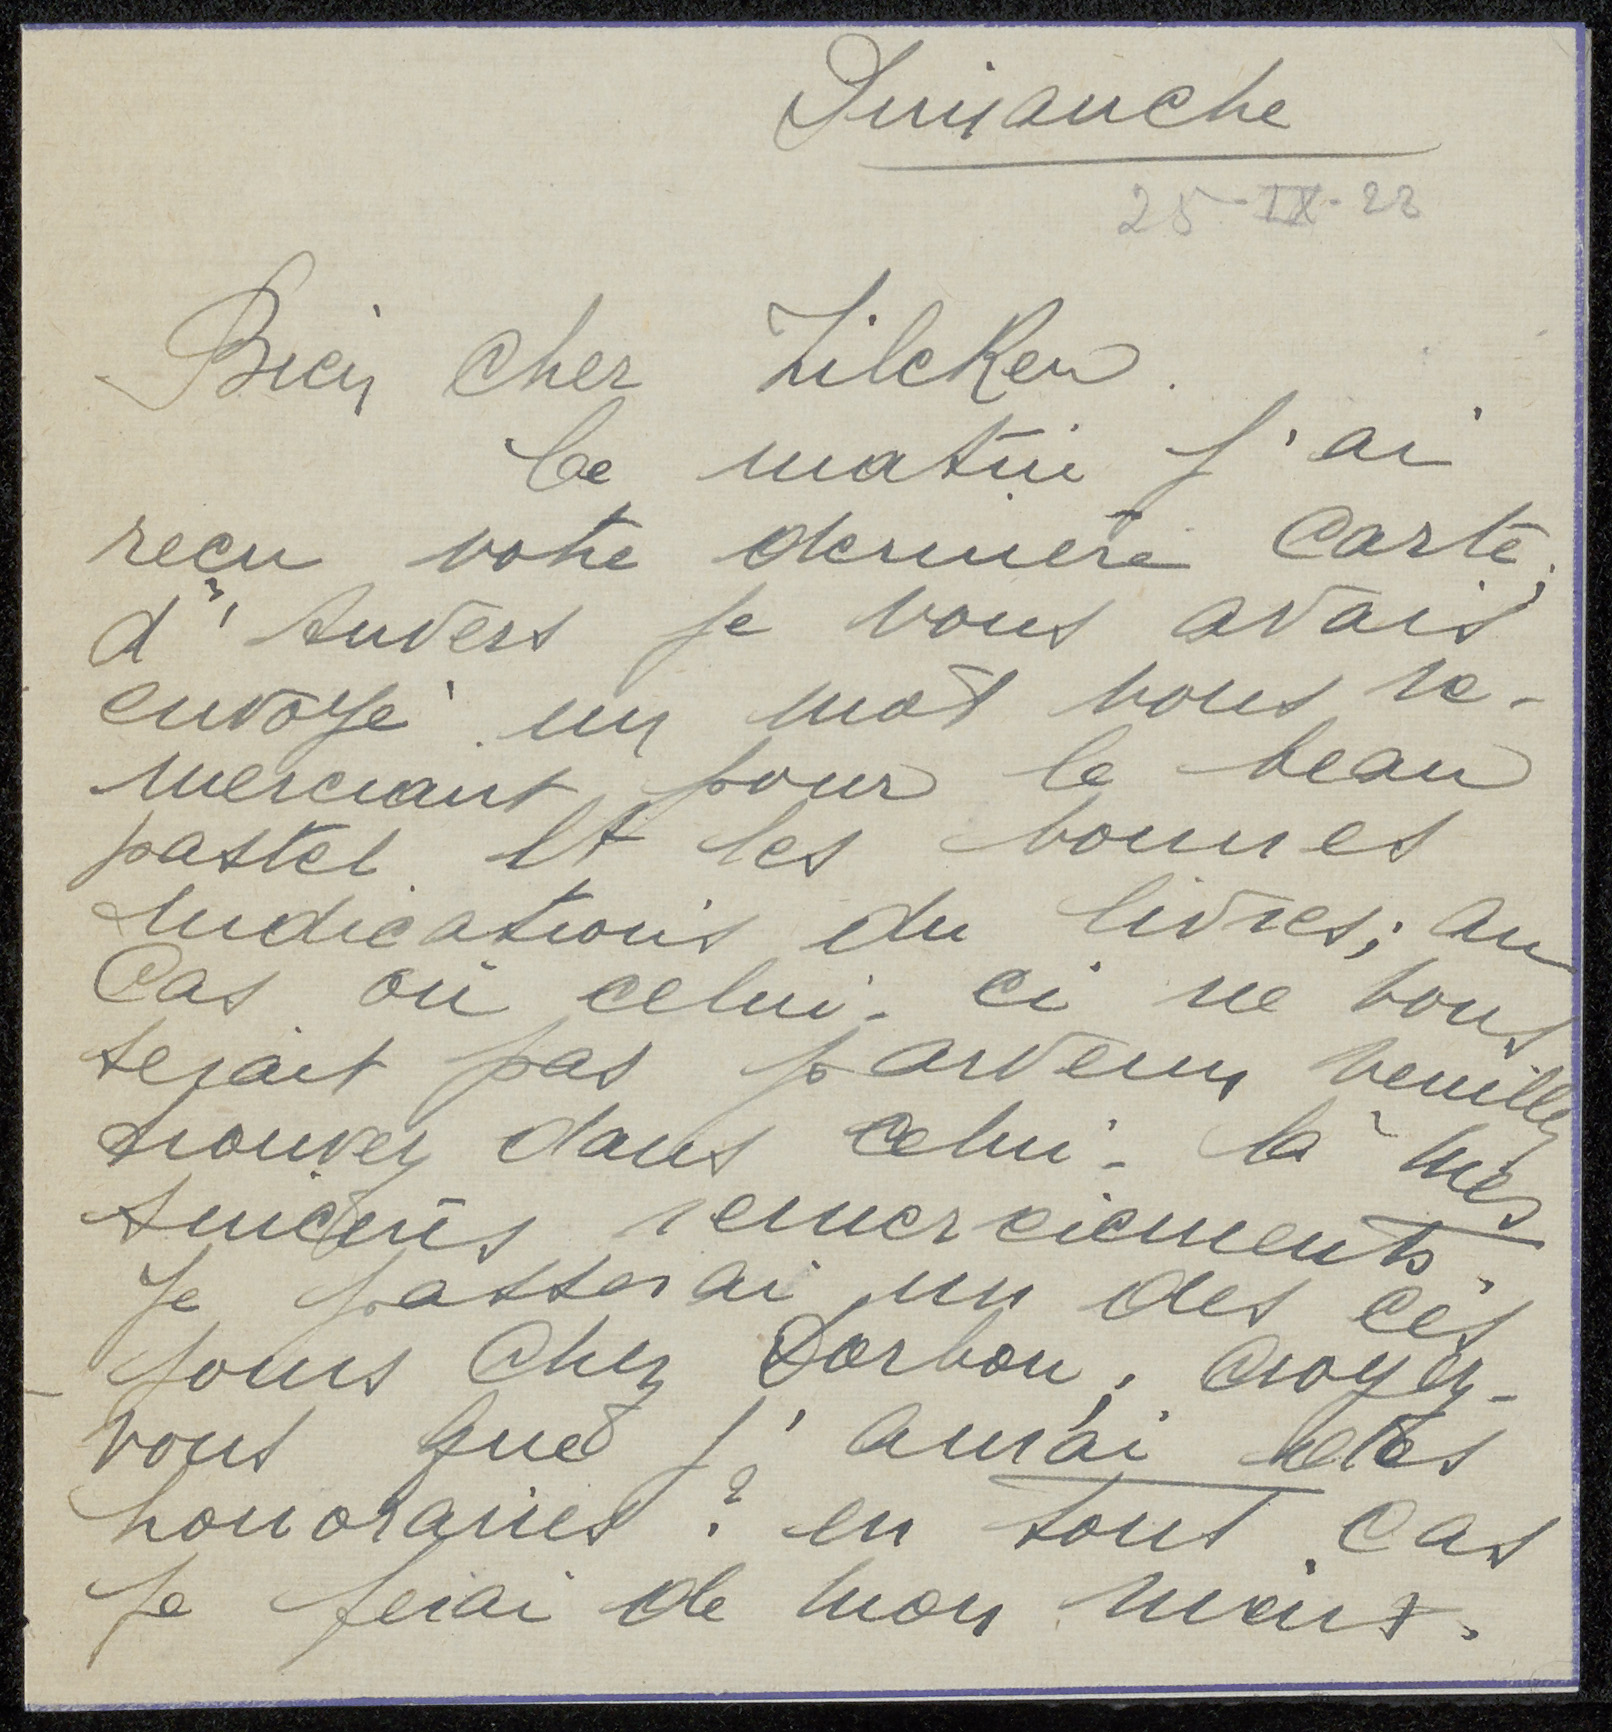 Dimanche
25-IX-23
Bien cher Zilcken.
Ce matin j'ai
reçu votre dernière carte;
d'Anvers je vous avais
envoyé un mot vous re-
merciant pour le beau
pastel et les bonnes
indications du livres; au
cas où celui-ci ne vous
serait pas parvenu veuillez
trouvez dans celui-là mes
sincères remerciements.
Je passerai un des ces
jours chez Dorbon, croyez-
vous que j'aurai
honoraires? en tout cas
je ferai de mon mieux.